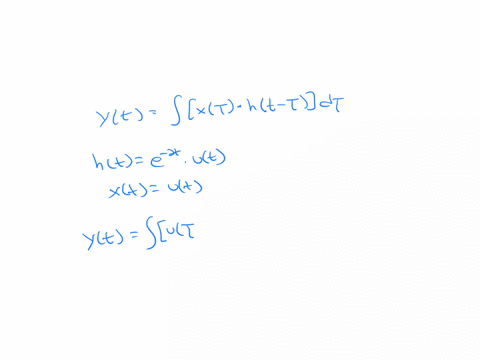 y(t) = ∫[x(T)·h(t-T)]dT
h(t) = e^{-2t}·u(t)
x(t) = u(t)
y(t) = ∫[u(T